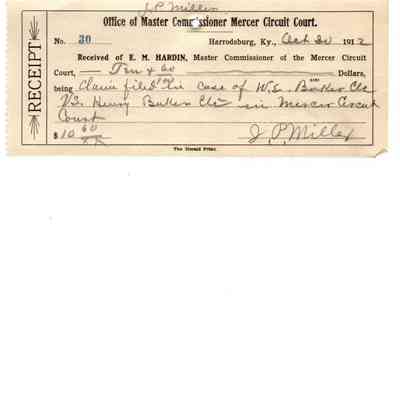 J.P. Miller
Office of Master Commissioner Mercer Circuit Court.
No. 30 Harrodsburg, Ky., Oct 30 1912
Received of E. M. HARDIN, Master Commissioner of the Mercer Circuit
Court, Ten & 60/100 Dollars,
being Claim filed in case of W.S. Baker &c
Vs. Henry Baker &c in Mercer Circuit
Court
$10 60 J. P. Miller
The Herald Print.
RECEIPT